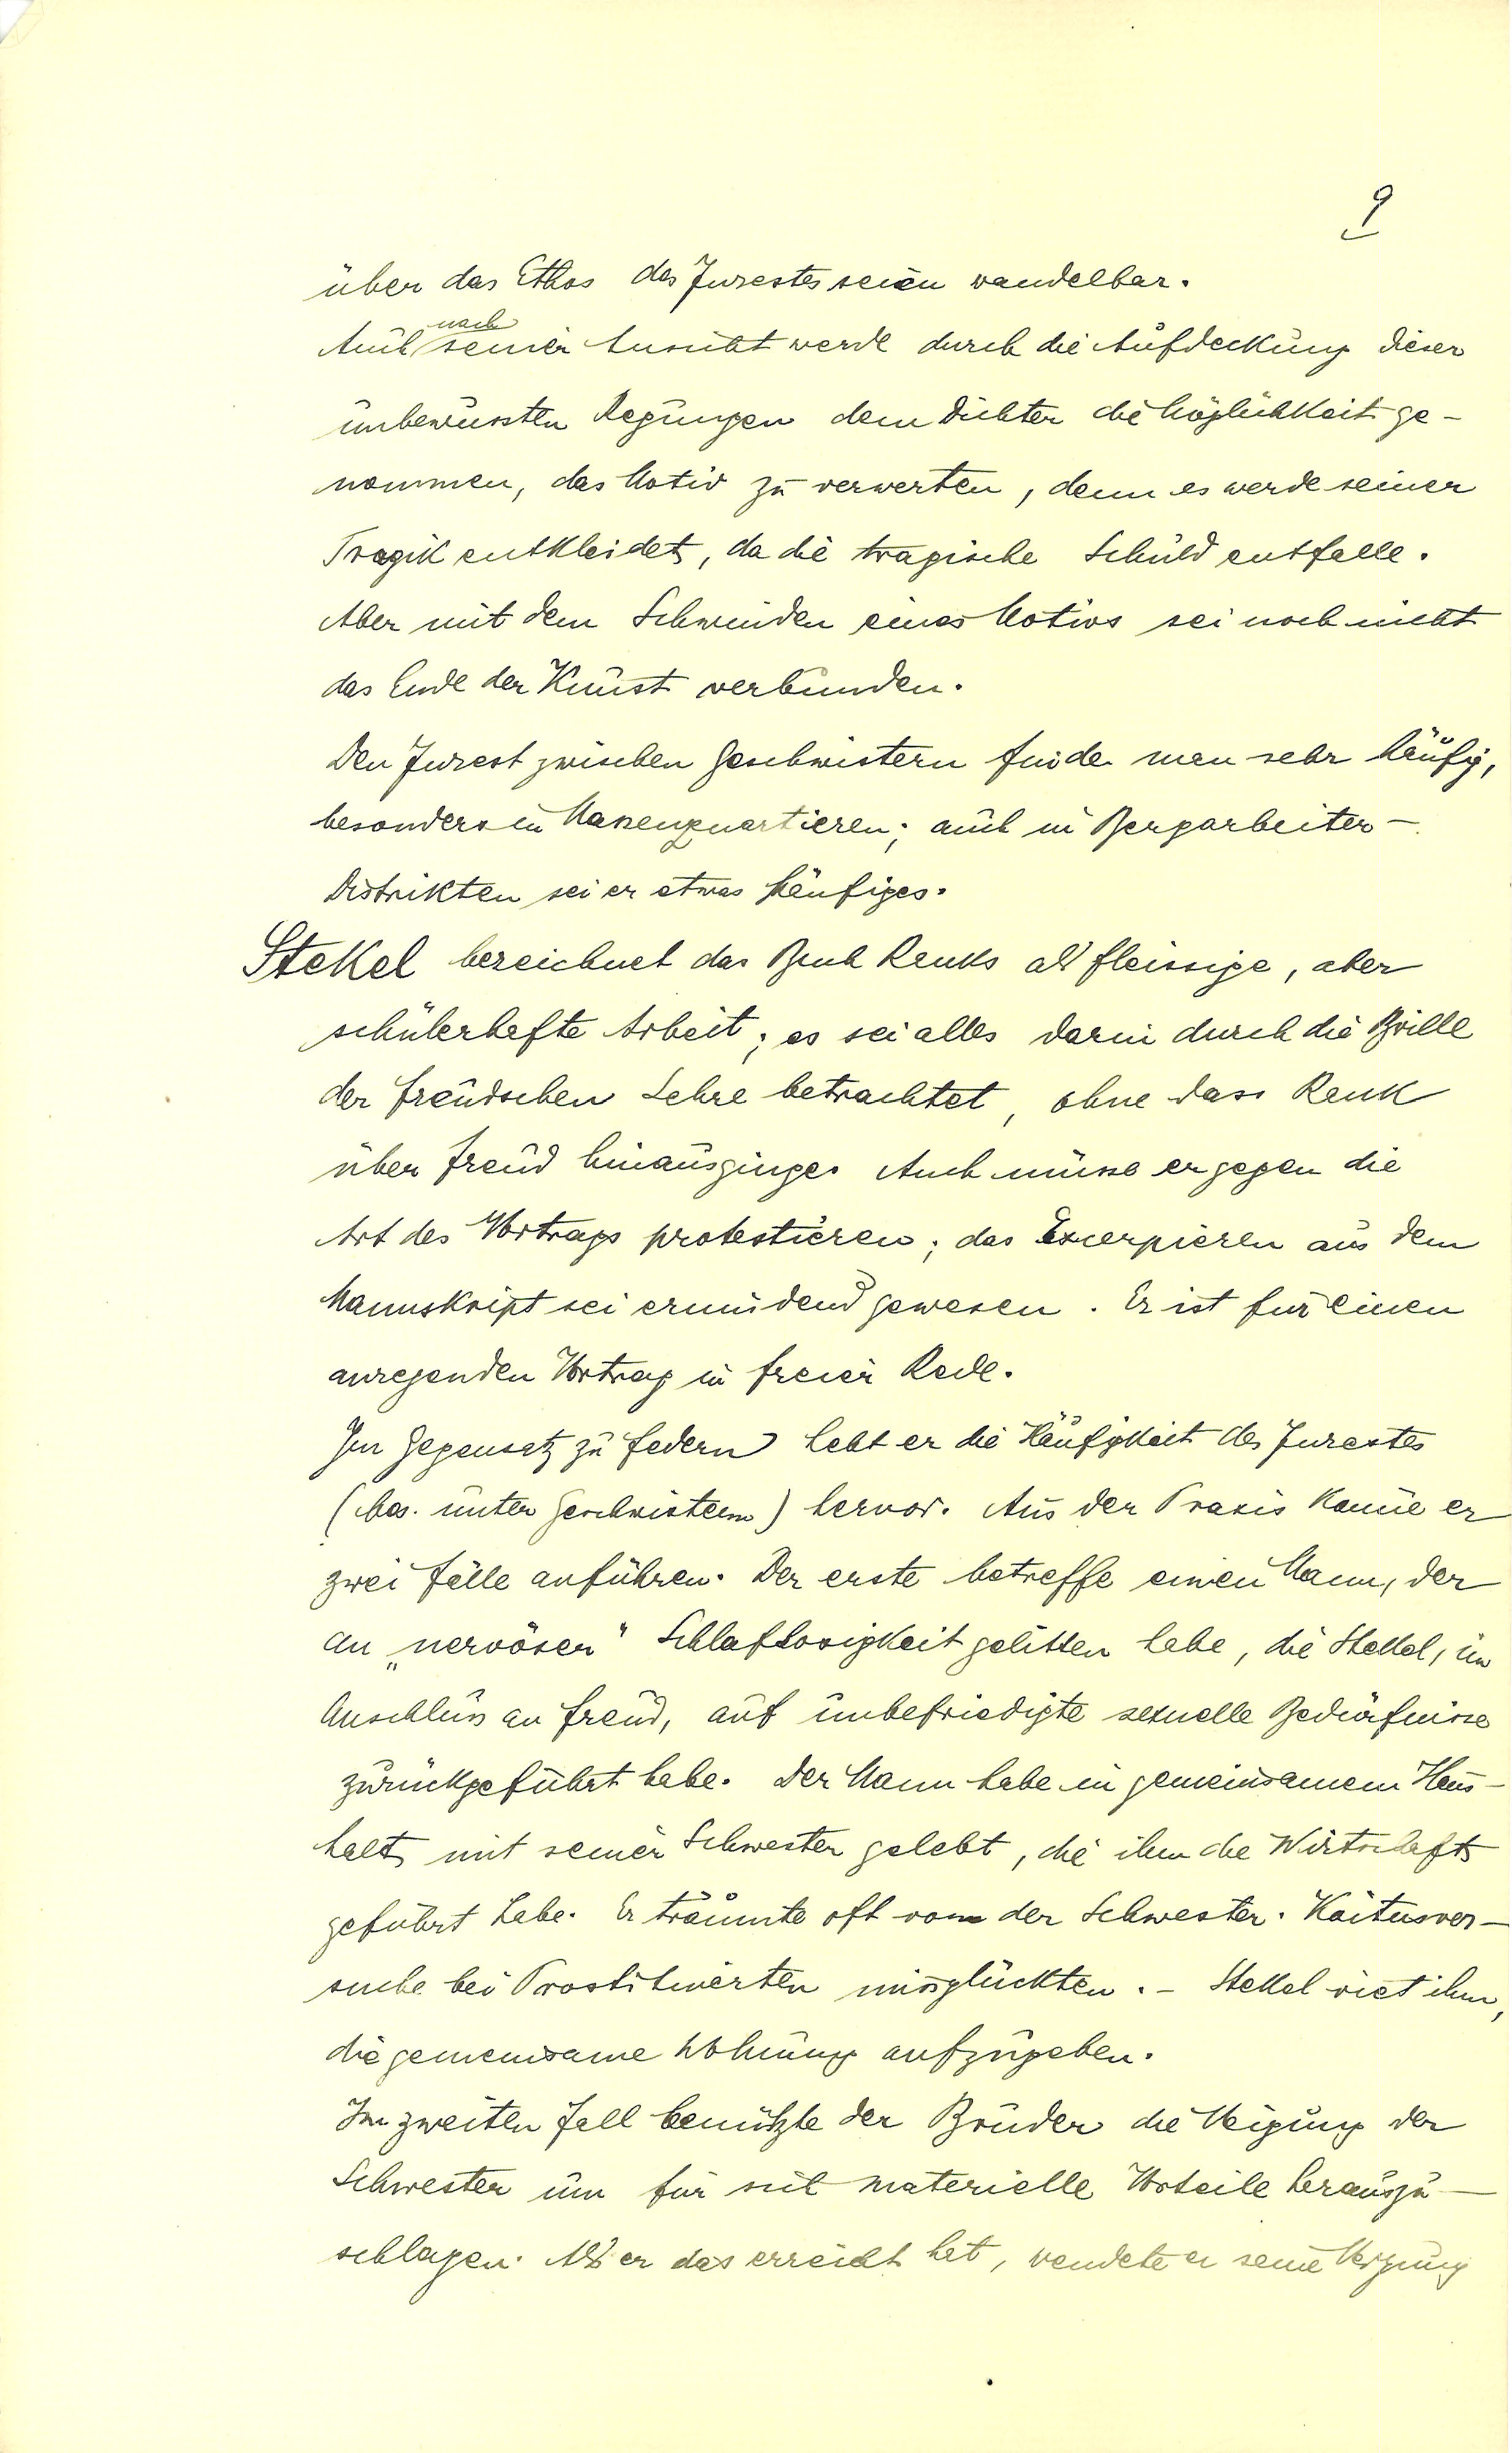 9
über das Ethos des Inzestes seien wandelbar.
nach
Auch seiner Ansicht werde durch die Aufdeckung dieser
unbewussten Regungen dem Dichter die Möglichkeit ge-
nommen, das Motiv zu verwerten, denn es werde seiner
Tragik entkleidet, da die tragische Schuld entfalle.
Aber mit dem Schwinden eines Motivs sei noch nicht
das Ende der Kunst verbunden.
Den Inzest zwischen Geschwistern finde man sehr häufig,
besonders in Massenquartieren; auch in Bergarbeiter-
Distrikten sei er etwas häufiges.
Stekel bezeichnet das Buch Ranks als fleissige, aber
schülerhafte Arbeit; es sei alles darin durch die Brille
der freudschen Lehre betrachtet, ohne dass Rank
über Freud hinausginge. Auch müsse er gegen die
Art des Vortrags protestieren; das Excerpieren aus dem
Manuskript sei ermüdend gewesen. Er ist für einen
anregenden Vortrag in freier Rede.
Im Gegensatz zu Federn hebt er die Häufigkeit des Inzestes
(bes. unter Geschwistern) hervor. Aus der Praxis könne er
zwei Fälle anführen. Der erste betreffe einen Mann, der
an „nervöser" Schlaflosigkeit gelitten habe, die Stekel, im
Anschluss an Freud, auf unbefriedigte sexuelle Bedürfnisse
zurückgeführt habe. Der Mann habe in gemeinsamem Haus-
halt mit seiner Schwester gelebt, die ihm die Wirtschaft
geführt habe. Er träumte oft von der Schwester. Koitusver-
suche bei Prostituierten missglückten. - Stekel riet ihm,
die gemeinsame Wohnung aufzugeben.
Im zweiten Fall benützte der Bruder die Neigung der
Schwester um für sich materielle Vorteile herauszu-
schlagen. Als er das erreicht hat, wendete er seine Neigung